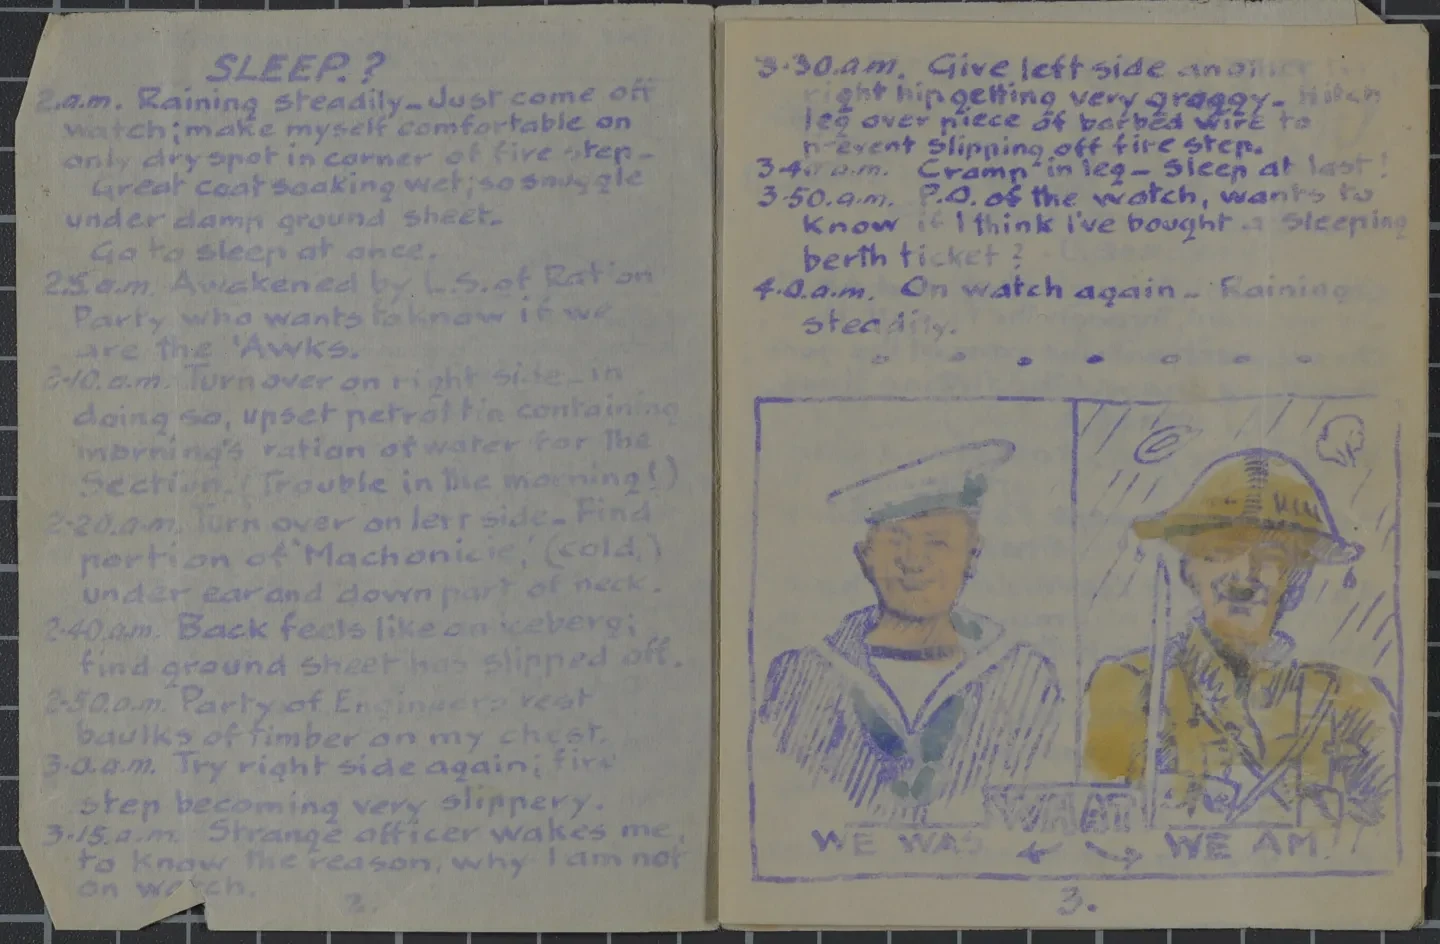 SLEEP.?
2.a.m. Raining steadily_Just come off
watch; make myself comfortable on
only dry spot in corner of fire step_
Great coat soaking wet; so snuggle
under damp ground sheet.
Go to sleep at once.
2.5.a.m. Awakened by L.S. of Ration
Party who wants to know if we
are the 'Awks.
2-10.a.m. Turn over on right side_in
doing so, upset petrol tin containing
morning's ration of water for the
Section. (Trouble in the morning!)
2-20.a.m. Turn over on left side_Find
portion of 'Machonicie,' (cold,)
under ear and down part of neck.
2-40.a.m. Back feels like an iceberg;
find ground sheet has slipped off.
2-50.a.m. Party of Engineers rest
baulks of timber on my chest.
3.0.a.m. Try right side again; fire
step becoming very slippery.
3-15.a.m. Strange officer wakes me,
to know the reason, why I am not
on watch.
2.
3-30.a.m. Give left side another
right hip getting very groggy_Hitch
leg over piece of barbed wire to
prevent slipping off fire step.
3-40.a.m. Cramp in leg_Sleep at last!
3-50.a.m. P.O. of the watch, wants to
know if I think I've bought a sleeping
berth ticket?
4.0.a.m. On watch again_Raining
steadily.
WHAT
WE WAS WE AM.
3.